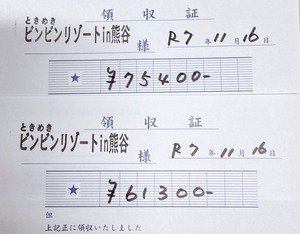 領収証
ときめき
ピンピンリゾートin熊谷
様 R7年11月16日
★ ¥775400-
領収証
ときめき
ピンピンリゾートin熊谷
様 R7年11月16日
★ ¥61300-
但
上記正に領収いたしました